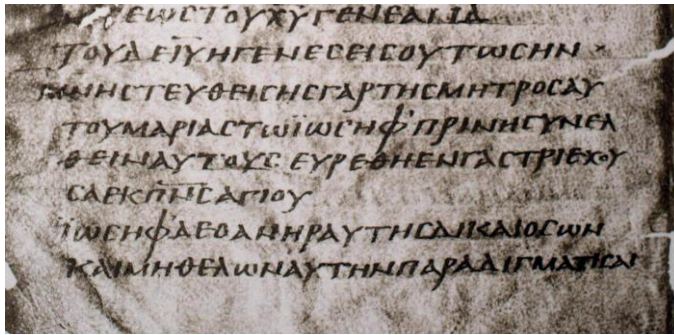 ΗϹΕΩϹΤΟΥΧ̅Υ̅ΓΕΝΕΑΙΙ̅Δ̅
ΤΟΥΔΕΙ̅Υ̅ΗΓΕΝΕϹΕΙϹΟΥΤΩϹΗΝ
ΜΝΗϹΤΕΥΘΕΙϹΗϹΓΑΡΤΗϹΜΗΤΡΟϹΑΥ
ΤΟΥΜΑΡΙΑϹΤΩΪΩϹΗΦ’ΠΡΙΝΗϹΥΝΕΛ
ΘΕΙΝΑΥΤΟΥϹΕΥΡΕΘΗΕΝΓΑϹΤΡΙΕΧΟΥ
ϹΑΕΚΠ̅Ν̅Ϲ̅ΑΓΙΟΥ
ΪΩϹΗΦ’ΔΕΟΑΝΗΡΑΥΤΗϹΔΙΚΑΙΟϹΩΝ
ΚΑΙΜΗΘΕΛΩΝΑΥΤΗΝΠΑΡΑΔΙΓΜΑΤΙϹΑΙ